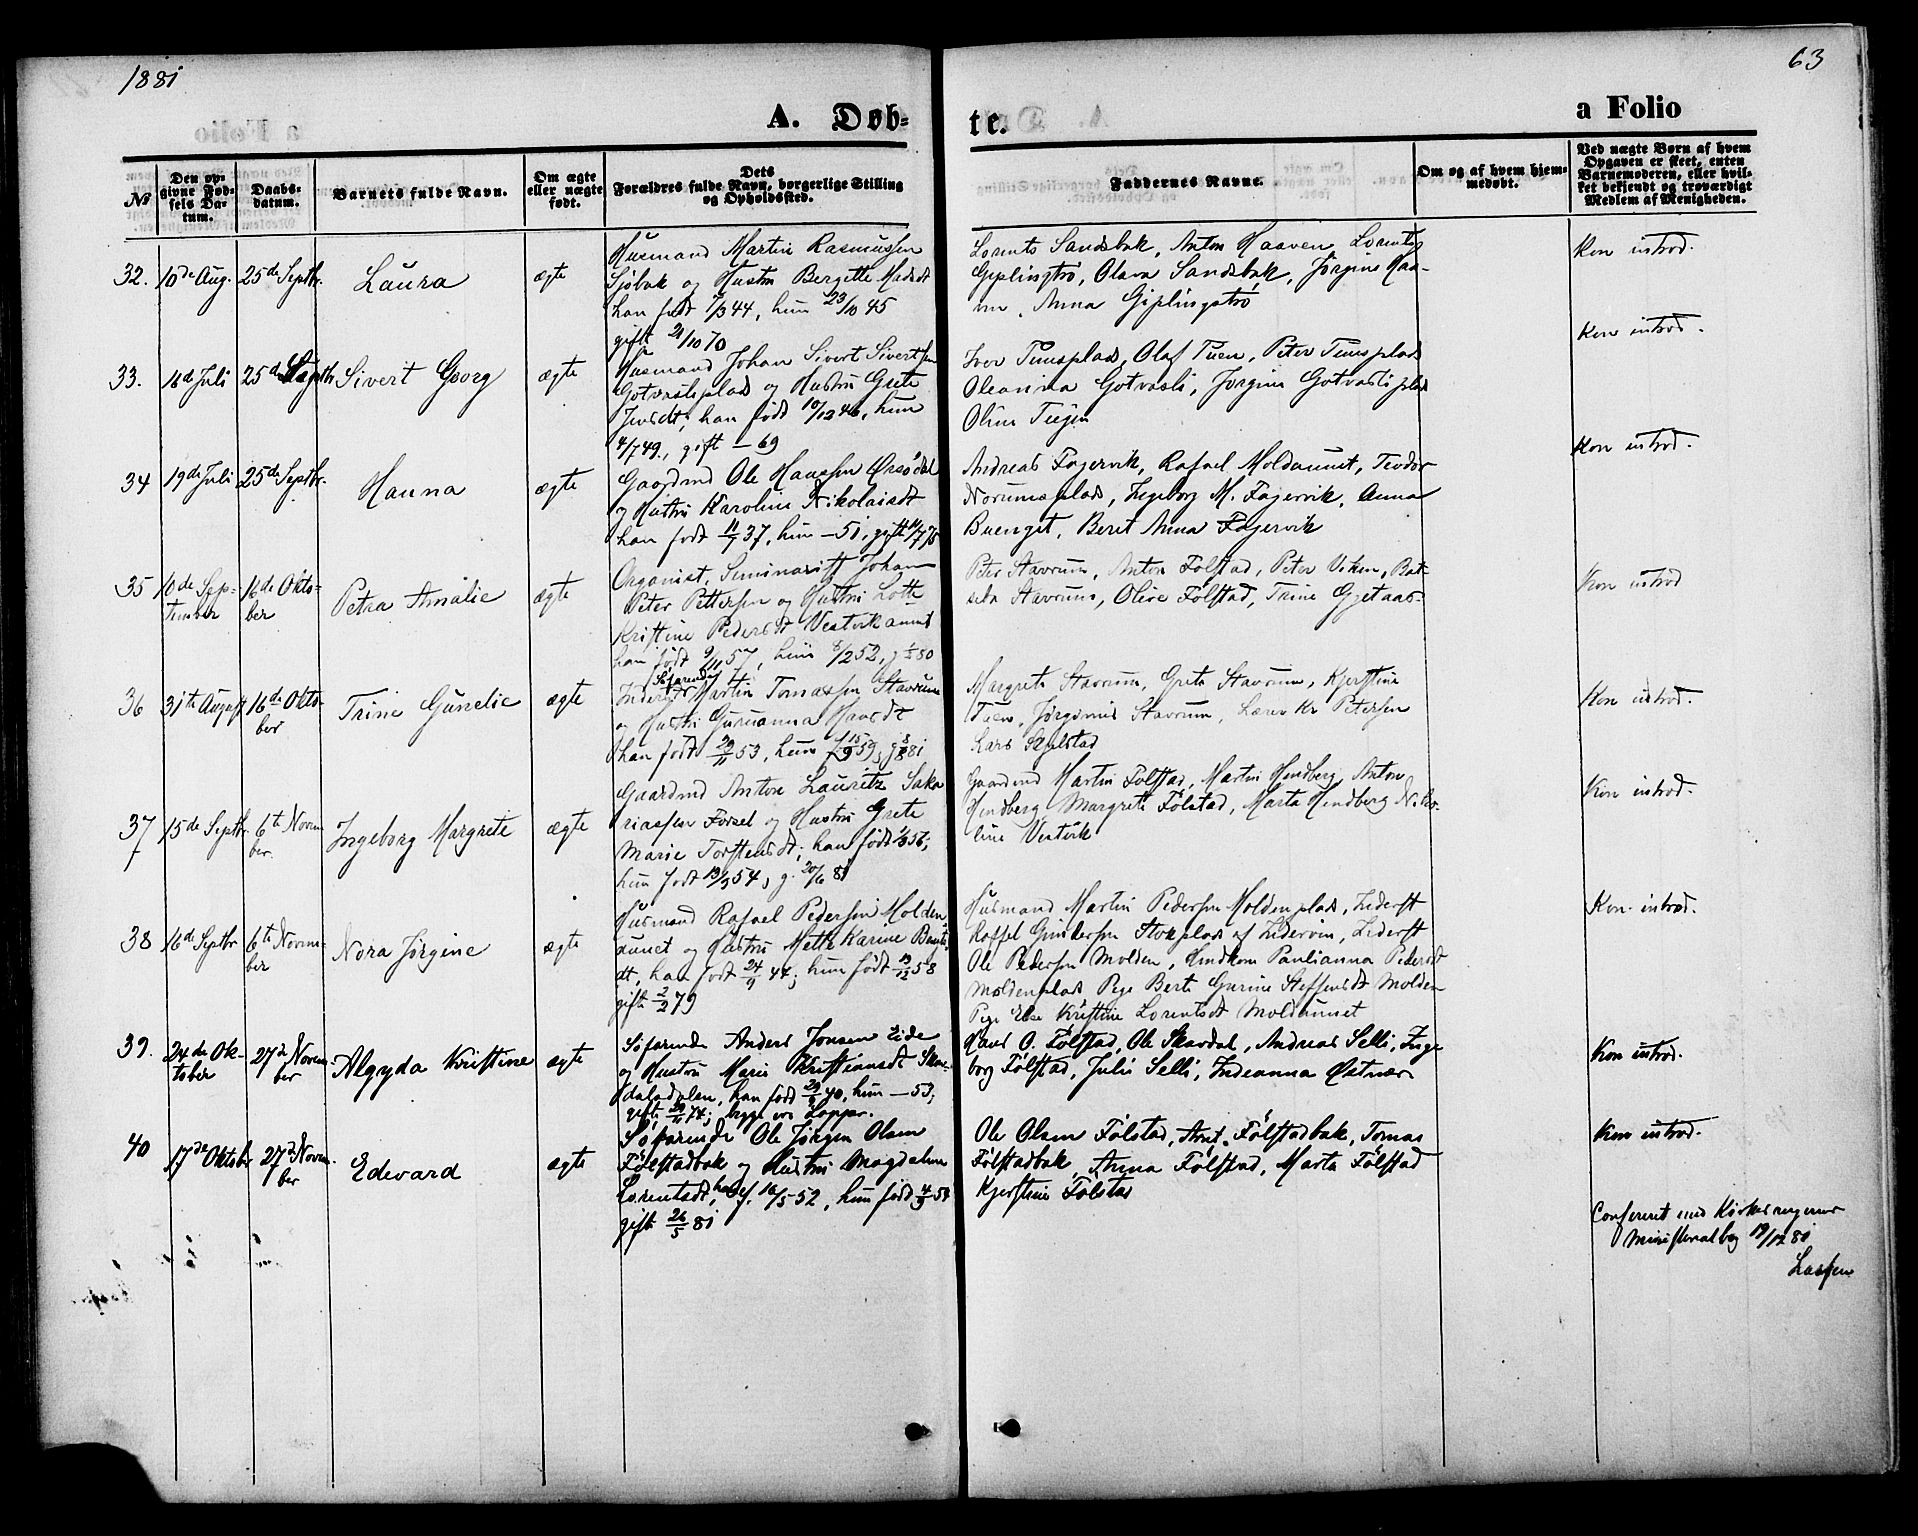 1881
63
A. Døb-
te.
a Folio
No
Den op-
givne Fød-
sels Da-
tum.
Daabs-
datum.
Barnets fulde Navn.
Om ægte
eller uægte
født.
Dets
Forældres fulde Navn, borgerlige Stilling
og Opholdssted.
Faddernes Navne.
Om og af hvem hjem-
medøbt.
Ved uægte Børn af hvem
Opgaven er skeet, enten
Barnemoderen, eller hvil-
ket bekjendt og troværdigt
Medlem af Menigheden.
32.
10de Aug.
25de Septbr.
Laura
ægte
Husmand Martin Rasmussen
Sjøbak og Hustru Bergitte Madsdt
han født 7/3 44, hun 23/10 45
gift 21/10 70
Lorents Sandsbak, Anton Haaven, Lorents
Giplingstrø, Olava Sandsbak, Jørgine Haa-
ven, Anna Giplingstrø
Kon introd.
33.
16d Juli
25de Septbr
Sivert Georg
ægte
Husmand Johan Sivert Sivertsen
Gotvasliplads og Hustru Grete
Jensdt, han født 10/12 46, hun
4/7 49., gift - 69
Iver Tunsplads, Olaf Tuen, Peter Tunsplads
Oleanna Gotvasli, Jørgine Gotvasliplads
Oline Teigen
Kon introd.
34
19de Juli
25de Septbr.
Hanna
ægte
Gaardmd Ole Hanssen Ørsødal
og Hustru Karoline Nikolaisdt
han født 11/9 37, hun - 51, gift 14/7 75
Andreas Fagervik, Rafael Moldaunet, Teodor
Norumsplads, Ingeborg M. Fagervik, Anna
Buenget, Beret Anna Fagervik
Kon introd.
35
10de Sep-
tember
16de Okto-
ber
Petra Amalie
ægte
Organist, Seminarist Johan
Peter Pettersen og Hustru Lotte
Kristine Pedersdt Vestvikaunet
han født 9/11 57, hun 8/2 52, g 1/2 80
Peter Stavrum, Anton Følstad, Peter Viken, Bat-
seba Stavrum, Olive Følstad, Trine Gjetaas
Kon introd
36
31te August
16de Okto-
ber
Trine Gunelie
ægte
Søfarende
Inderst Martin Tomassen Stavrum
og Hustru Gurianna Haarsdt
han født 29/11 53, hun f 15/9 59, g 8/8 81
Margrete Stavrum, Grete Stavrum, Kjerstine
Tuen, Jørginus Stavrum, Lars Kr Petersen
Lars Skjelstad
Kon introd.
37
15de Septbr.
6te Novem
ber.
Ingeborg Margrete
ægte
Gaardmd Anton Lauritz Saka
riassen Forsel og Hustru Grete
Marie Torstensdt; han født 1/3 56;
hun født 13/3 54, g. 20/6 81
Gaardmd Martin Følstad, Martin Hindberg, Anton
Hindberg, Margrete Følstad, Marta Hindberg, Niko-
line Vestvik
Kon introd.
38
16de Septbr
6te Novem-
ber
Nora Jørgine
ægte
Husmand Rafael Pedersen Molden
aunet og Hustru Mette Karine Bents
dt, han født 24/9 44; hun født 19/12 58
gift 2/2 79
Husmand Martin Pedersen Moldenplads, Inderst
Kassel Gundersen Stokplads af Inderøen, Inderst
Ole Pedersen Molden, Husmdkone Paulianna Pedersdt
Moldenplads Pige Berte Gurine Steffensdt Molden
Pige Else Kristine Lorentsdt Moldaunet
Kon introd.
39.
24de Ok-
tober
27de Novem
ber
Algyda Kristine
ægte
Søfarende Anders Jonsen Eide
og Hustru Marie Kristiansdt Skav-
dalsdalen, han født 29/2 40, hun - 53,
gift 29/11 74;
Hans O. Følstad, Ole Skavdal, Andreas Selli, Inge
borg Følstad, Julie Selli, Indianna Østnær
Kon introd.
40
17de Oktobr
27de Novem-
ber
Edevard
ægte
Søfarende Ole Jørgen Olsen
Følstadbak og Hustru Magdalena
Lorentsdt, han f. 16/5-52, hun født 4/9 58
gift 26/5 81
Ole Olsen Følstad, Arnt Følstadbak, Tomas
Følstadbak, Anna Følstad, Marta Følstad
Kjerstine Følstad
Kon introd.
Confereret med Kirkesangerens
Ministerialbog 19/12 81
Lassen